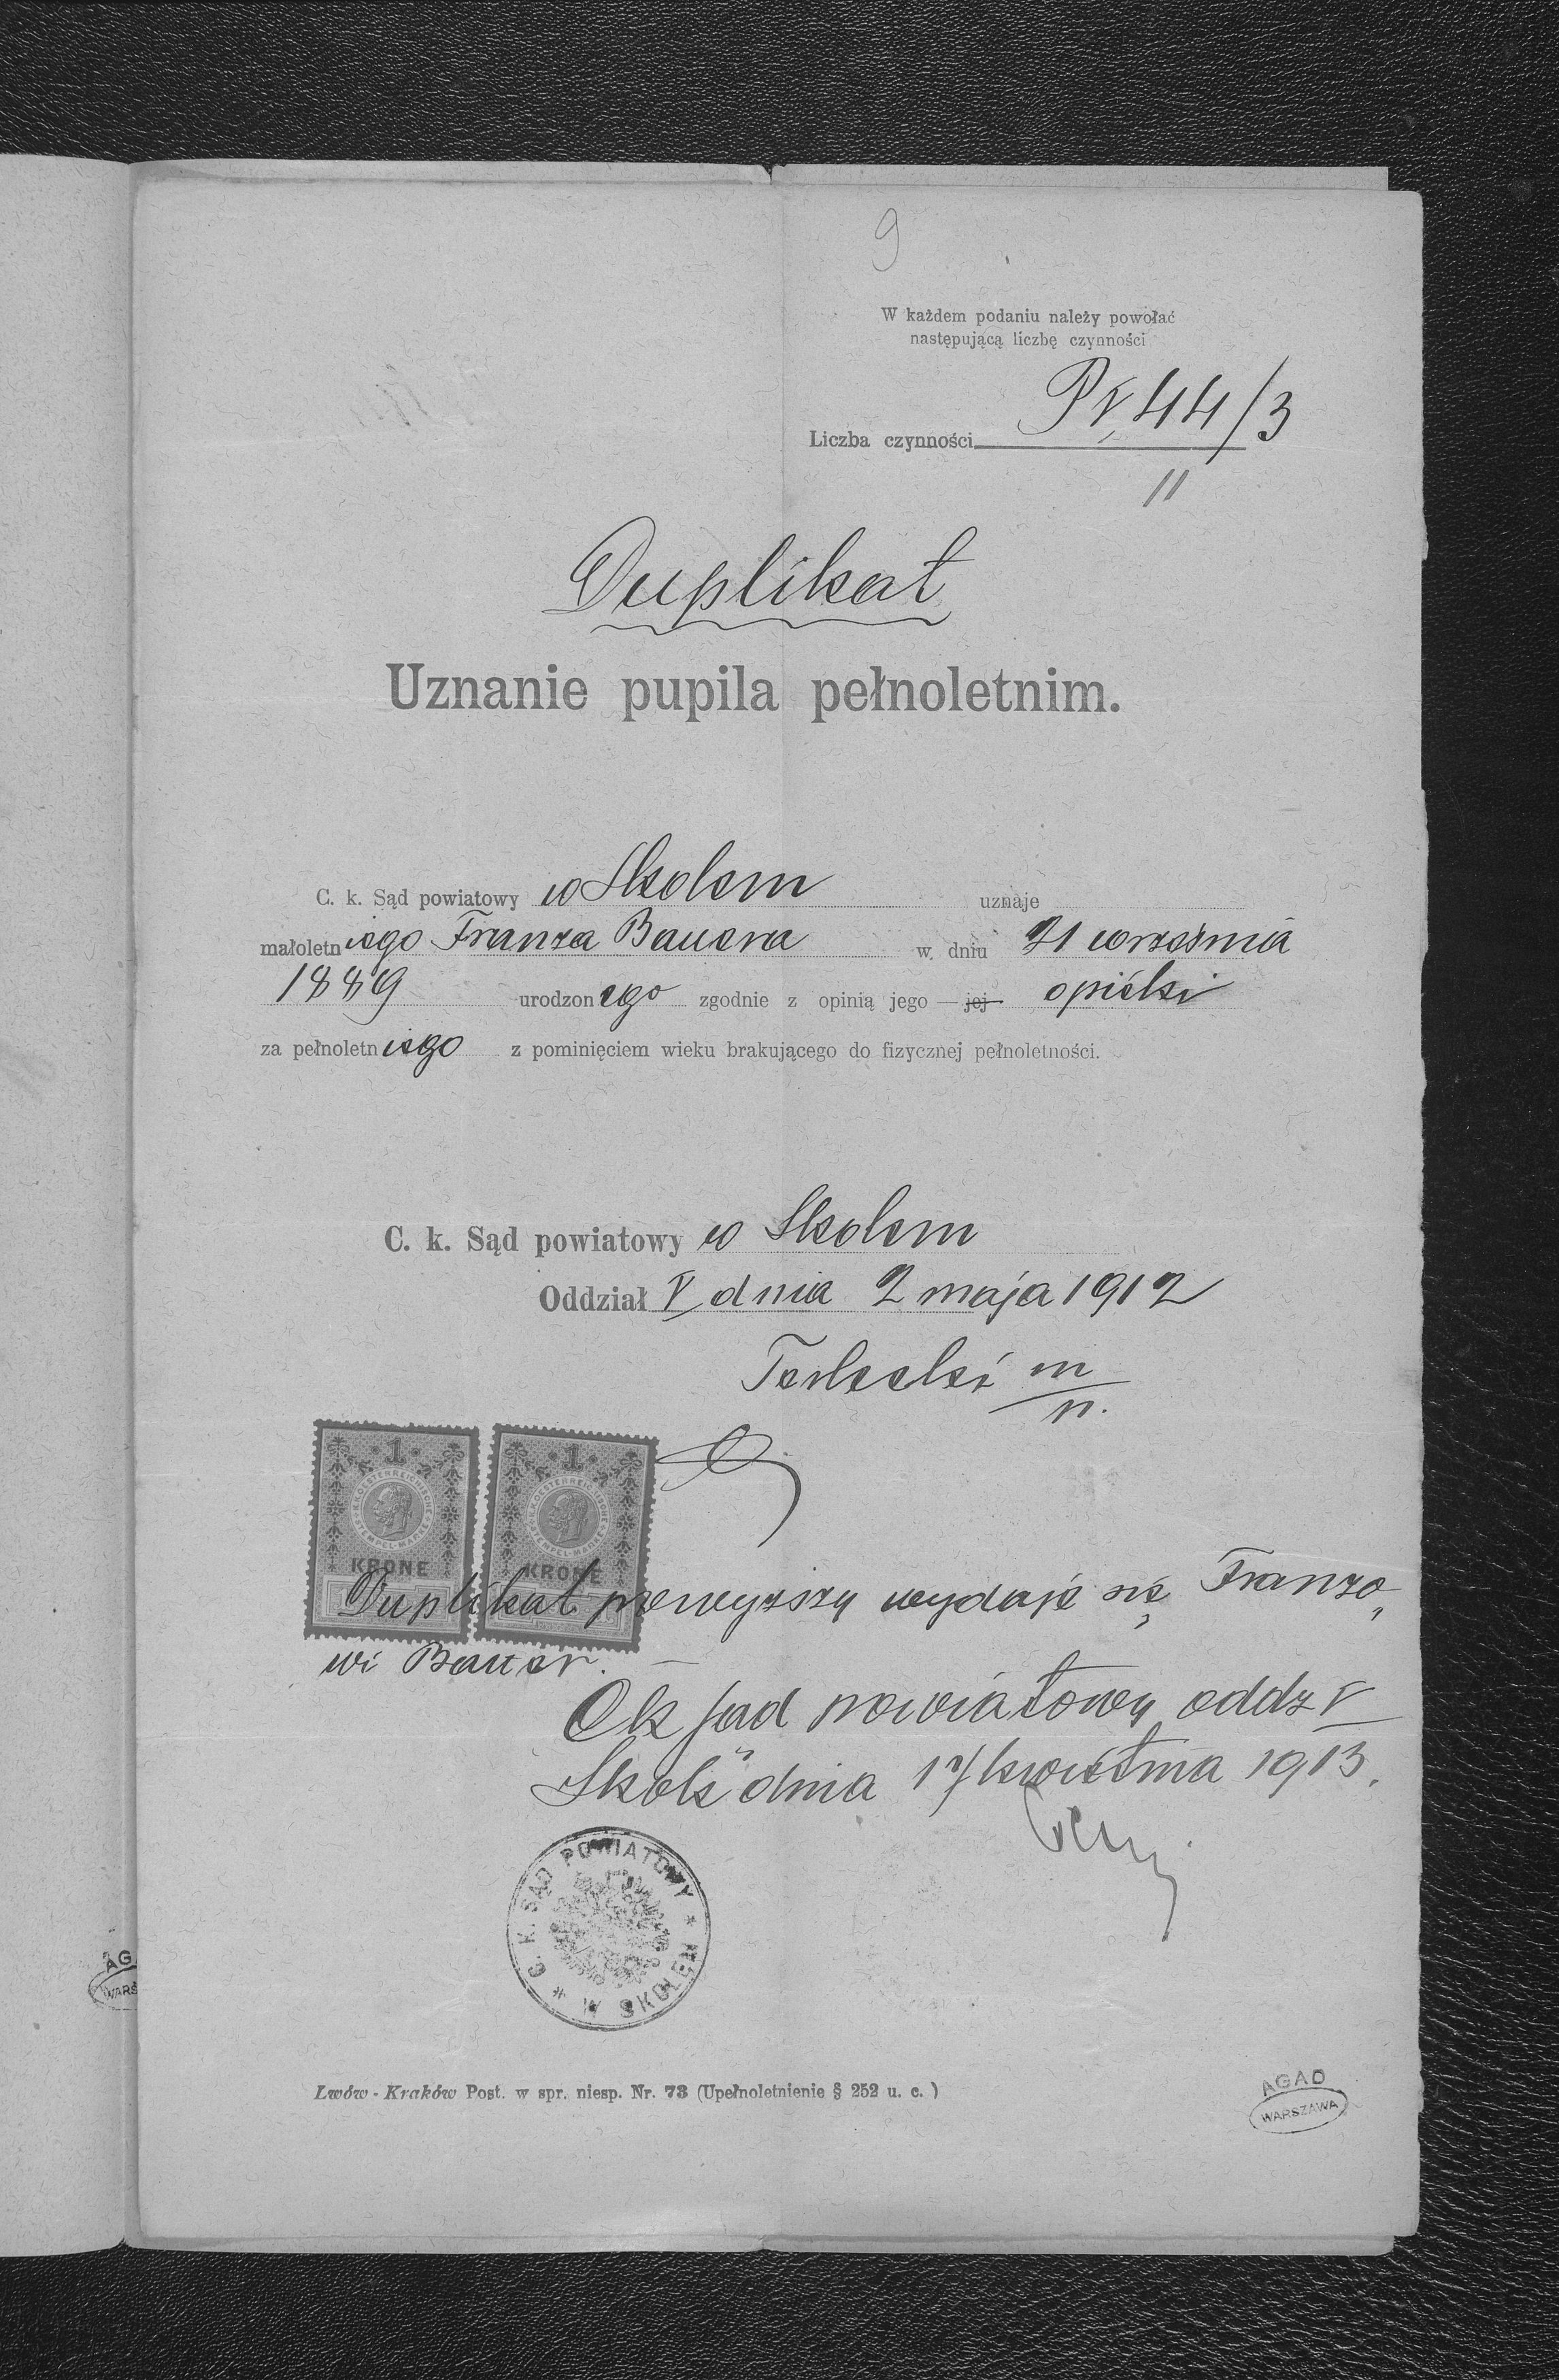 9
W każdem podaniu należy powołać
następującą liczbę czynności
Liczba czynności P V 44/3
11
Duplikat
Uznanie pupila pełnoletnim.
C. k. Sąd powiatowy w Skolem uznaje
małoletniego Franza Bauera w dniu 21 września
1889 urodzonego zgodnie z opinią jego — jej opieki
za pełnoletniego z pominięciem wieku brakującego do fizycznej pełnoletności.
C. k. Sąd powiatowy w Skolem
Oddział V dnia 2 maja 1912
Terlecki m/p.
1 1
K.K. OESTERREICHISCHE STEMPEL-MARKE K.K. OESTERREICHISCHE STEMPEL-MARKE
KRONE KRONE
Duplikat powyższy wydaje się Franzo
wi Bauer.
Ck sąd powiatowy oddz V
Skole dnia 17 kwietnia 1913.
C. K. SĄD POWIATOWY * W SKOLEM *
Lwów - Kraków Post. w spr. niesp. Nr. 73 (Upełnoletnienie § 252 u. c. )
AGAD
WARSZAWA
AG
WARS